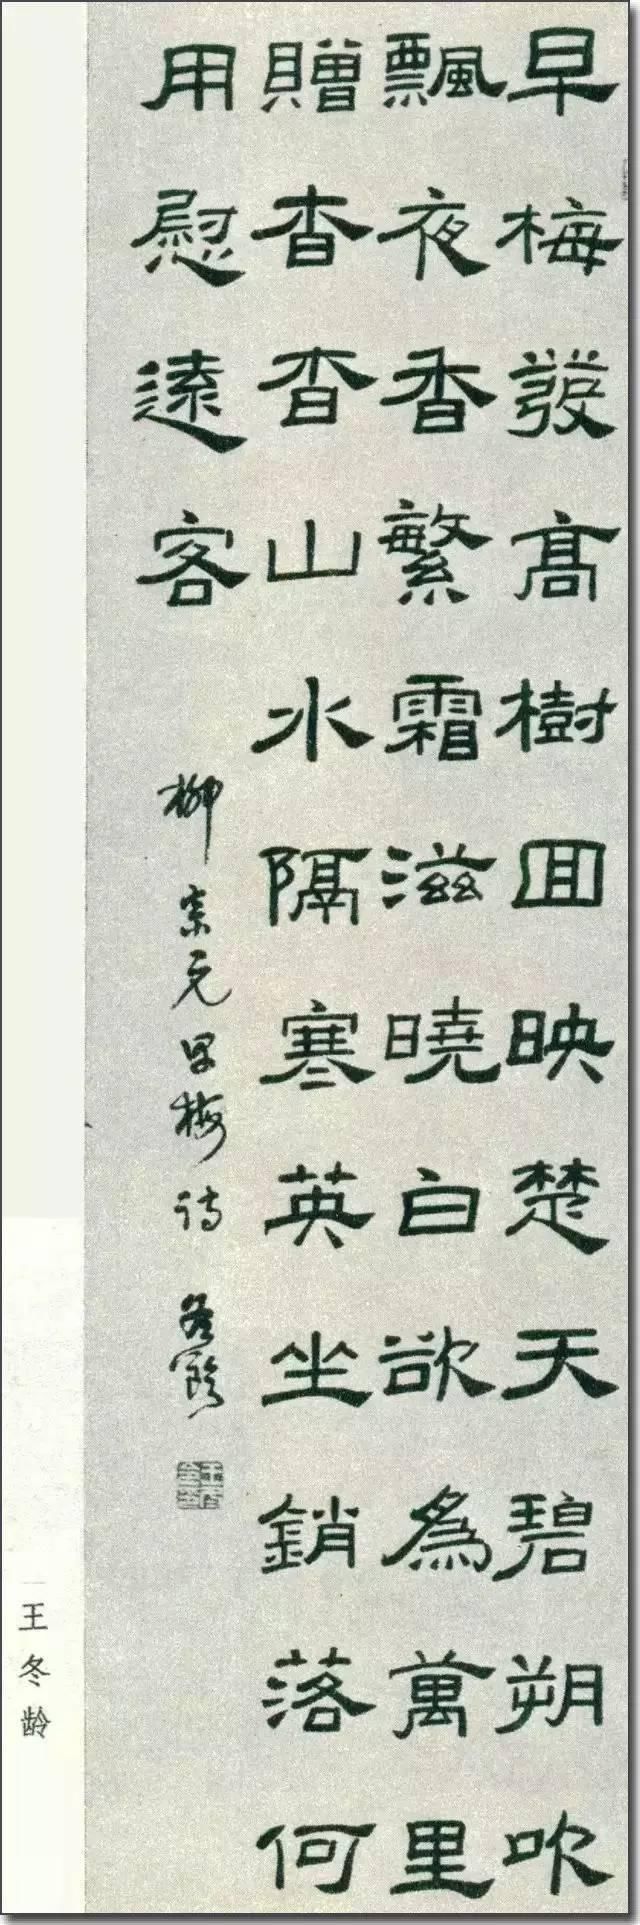 早梅發髙樹囬映楚天碧朔吹
飄夜香繁霜滋曉白欲為萬里
贈杳杳山水隔寒英坐銷落何
用慰遠客
柳宗元早梅诗 冬齡
王冬龄